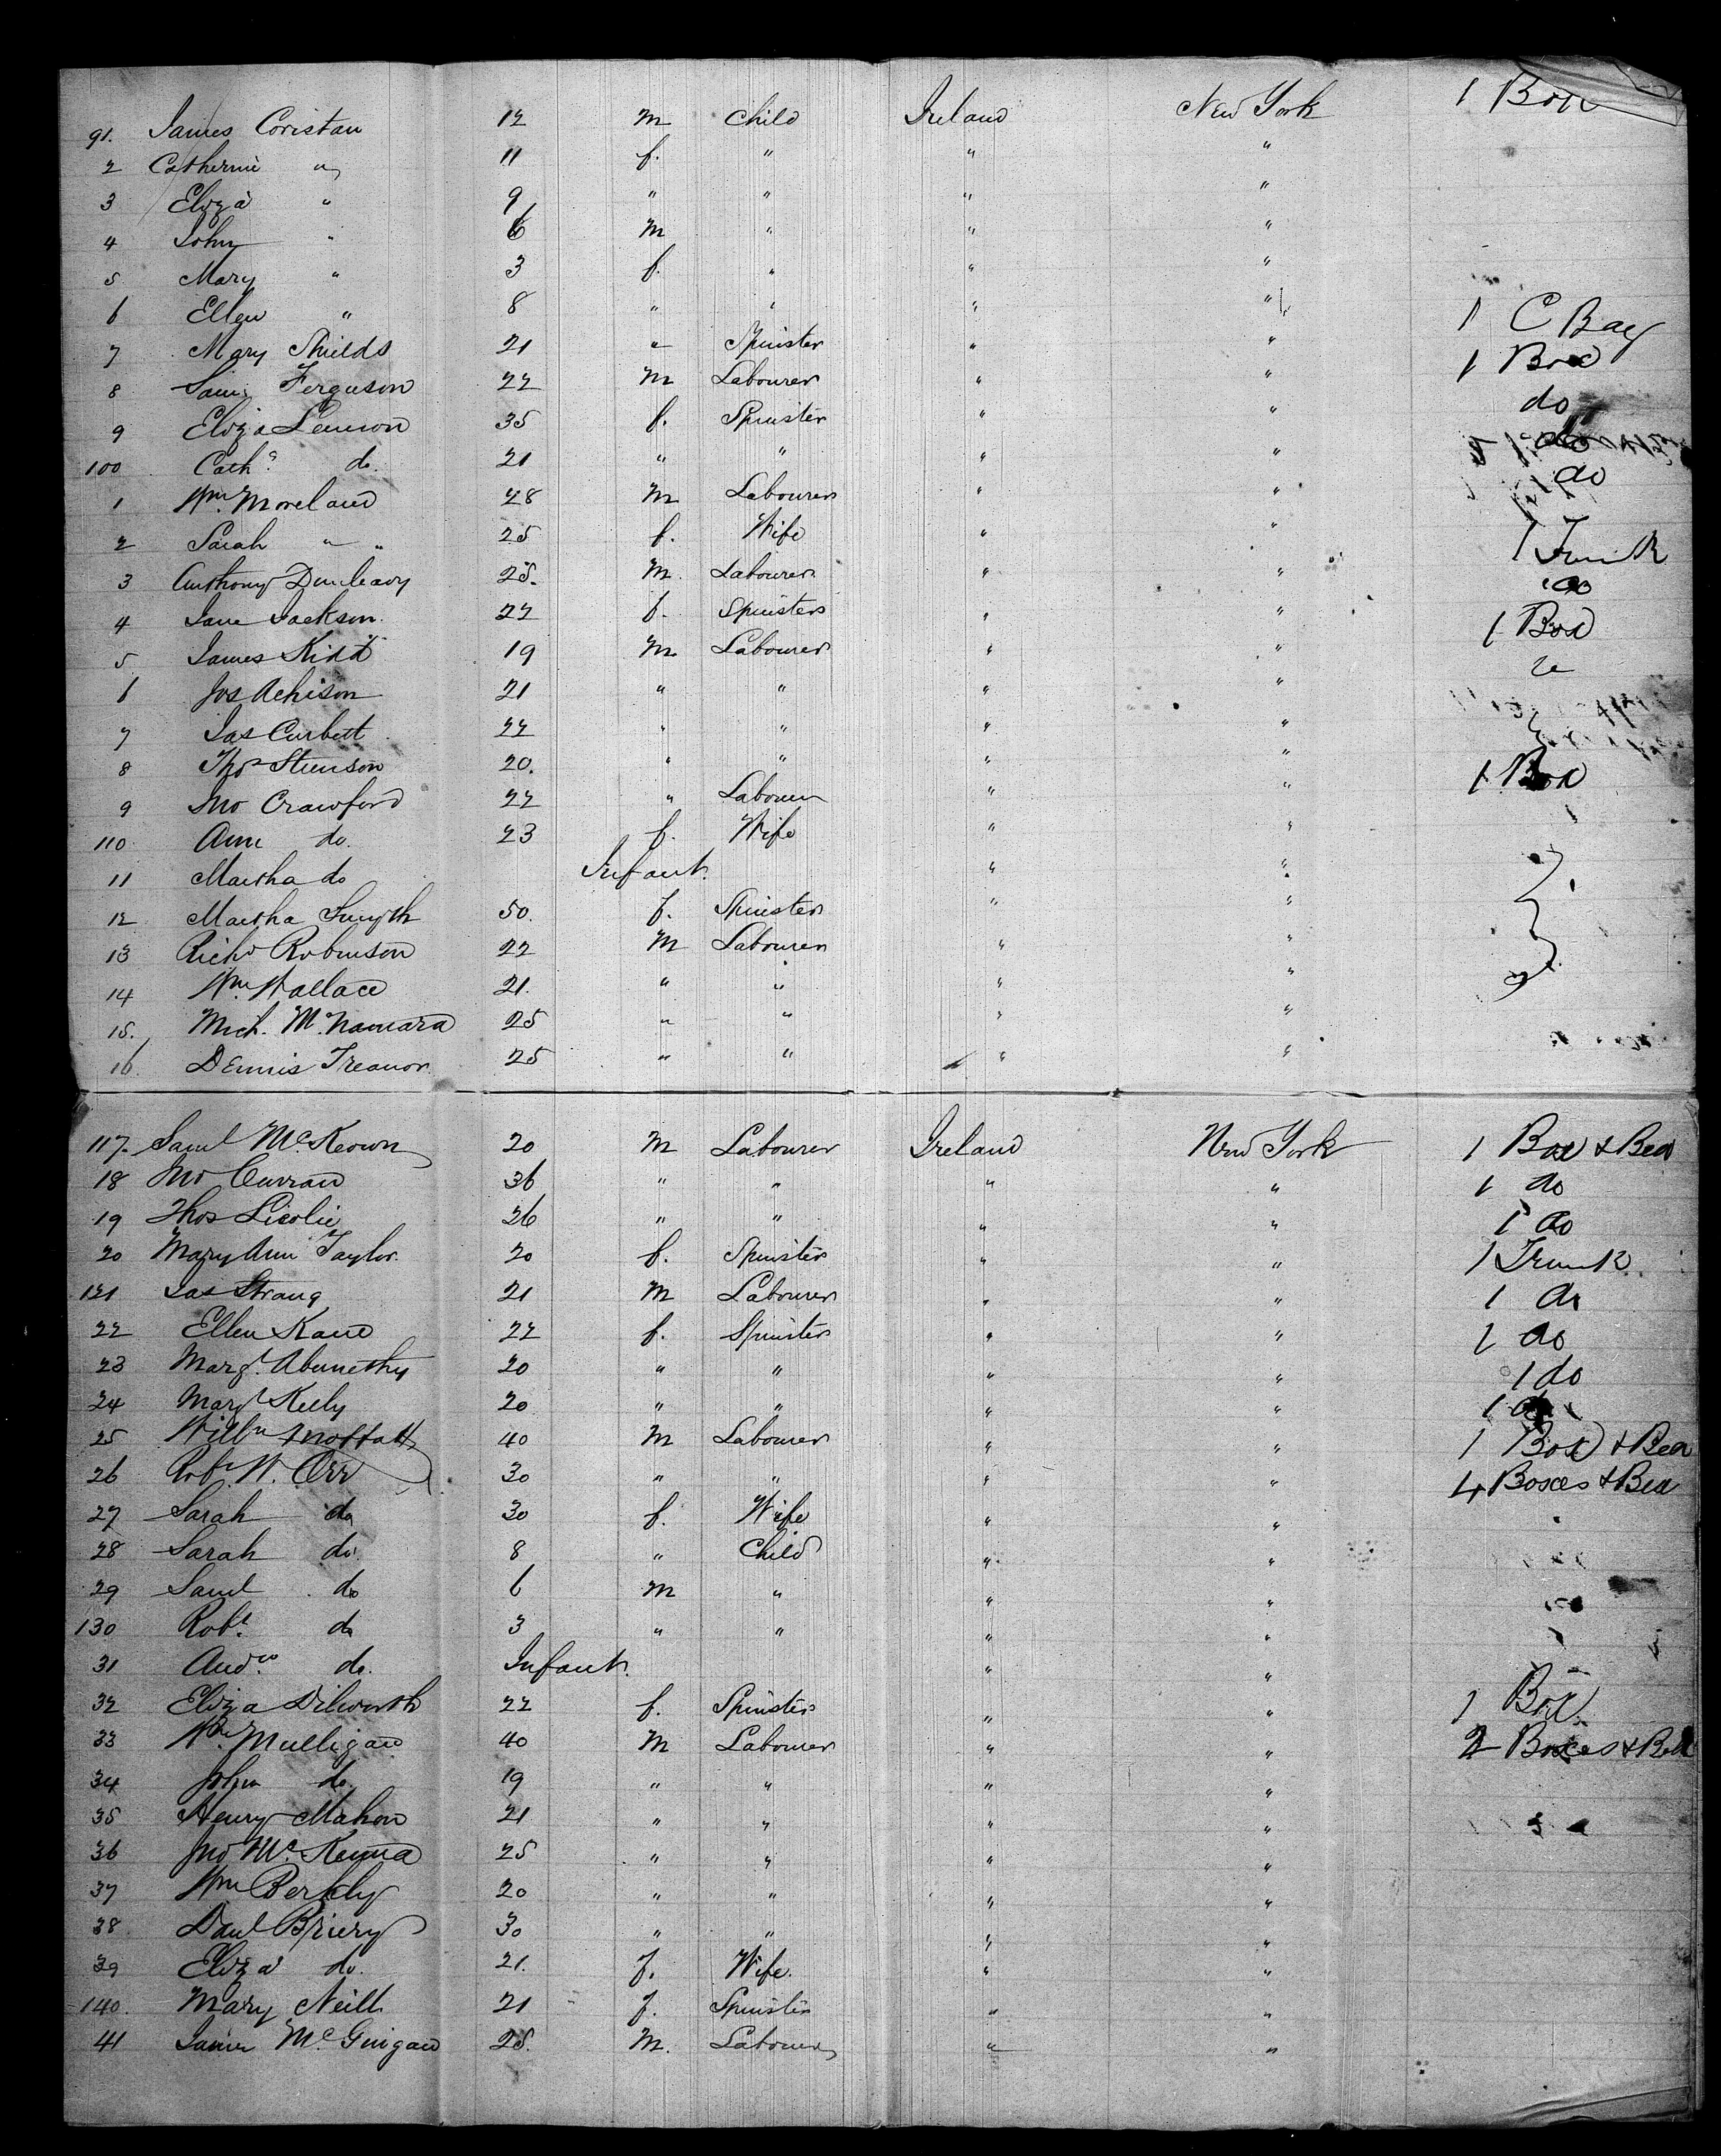 91. James Coristan 12 M Child Ireland New York 1 Box
2 Catherine " 11 f. " " "
3 Eliza " 9 " " " "
4 John " 6 M " " "
5 Mary " 3 f. " " "
6 Ellen " 8 " " " " 1 C Bag
7 Mary Shields 21 " Spinster " " 1 Box
8 Saml Ferguson 22 M Labourer " " do
9 Eliza Lennon 35 f. Spinster " " do
100 Cath. do. 21 " " " " do
1 Wm. Moreland 28 M Labourer " "
2 Sarah " " 25 f. Wife " " 1 Trunk
3 Anthony Dunleavy 25. M. Labourer " " do
4 Jane Jackson. 22 f. Spinster " " 1 Box
5 James Kidd 19 M. Labourer " "
6 Jos Achison 21 " " " "
7 Jas Curbett 22 " " " "
8 Thos Stenson 20. " " " " 1 Box
9 Jno Crawford 22 " Labourer " "
110 Ann do. 23 f. Wife " "
11 Martha do Infant. " "
12 Martha Smyth 50. f. Spinster " "
13 Richd Robinson 22 M Labourer " "
14 Wm. Wallace 21. " " " "
15. Mich. McNamara 25 " " " "
16 Dennis Treanor. 25 " " " "
117. Saml McKeown 20 M Labourer Ireland New York 1 Box & Bed
18 Jno Curran 36 " " " " 1 do
19 Thos 26 " " " " 1 do
20 Mary Ann Taylor. 20 f. Spinster " " 1 Trunk
121 Jas Strang 21 M Labourer " " 1 do
22 Ellen Kane 22 f. Spinster " " 1 do
23 Margt. Abernethy 20 " " " " 1 do
24 Margt Kelly 20 " " " " 1 do
25 Willm Moffatt 40 M Labourer " " 1 Box & Bed
26 Robt W. Orr 30 " " " " 4 Boxes & Bed
27 Sarah do 30 f. Wife " "
28 Sarah do. 8 " Child " "
29 Saml do 6 M " " "
130 Robt. do 3 " " " "
31 Andw. do. Infant. " "
32 Eliza Dilworth 22 f. Spinster " " 1 Box
33 Wm Mulligan 40 M Labourer " " 2 Boxes & Bed
34 John do. 19 " " " "
35 Henry Mahon 21 " " " "
36 Jno McKenna 25 " " " "
37 Wm Berkly 20 " " " "
38 Danl Briery 30 " " " "
39 Eliza do. 21. f. Wife. " "
140. Mary Neill 21 f. Spinster " "
41 James McGuigan 25. M. Labourer " "